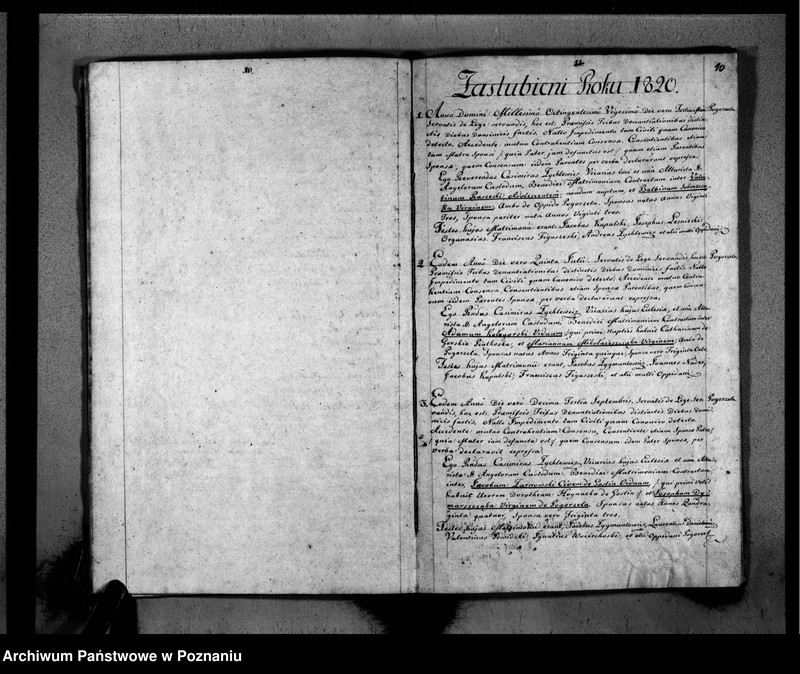 10.
14
10
Zaslubieni Roku 1820.
1. Anno Domini Millesimo Octingentesimo Vigesimo Die vero Tertia Pogorzela
Servatis de Lege servandis, hoc est: Præmissis Tribus Denuntiationibus
Diebus Dominicis factis, Nullo Impedimento tam Civili quam Canonico
detecto, Accedente mutuo Contrahentium Consensu, Consentientibus etiam
tam Mater Sponsi /: quia Pater jam defunctus est :/ quam etiam Parentibus
Sponsæ, quem Consensum iidem Parentes per verba declararunt expressa.
Ego Reverendus Casimirus Zychlewicz Vicarius loci et una Altarista
Angelorum Custodum, Benedixi Matrimonium Contractum inter
Raszeski Adolescentem, nondum nuptum, et Balbinam
Virginem, Ambo de Oppido Pogorzela, Sponsus natus Annos Viginti
Tres, Sponsa pariter nata Annos Viginti tres.
Testes hujus Matrimonii erant: Jacobus Kapulski, Josephus Lesnietki
Organarius, Franciscus Figaszeski, Andreas Zychlewicz et alii multi Oppidani
2. Eodem Anno Die vero Quinta Julii Servatis de Lege Servandis, hoc est Pogorzela
Præmissis Tribus Denuntiationibus distinctis Diebus Dominicis factis Nullo
Impedimento tam Civili quam Canonico detecto, Accedente mutuo Contra-
hentium Consensu, Consentientibus etiam Sponsæ Parentibus, quem Consen
sum iidem Parentes Sponsæ, per verba declararunt expressa.
Ego Rndus Casimirus Zychlewicz Vicarius hujus Ecclesiæ, et una Alta
rista SS. Angelorum Custodum, Benedixi Matrimonium Contractum inter
Adamum Kologorski Viduum, /: qui primis Nuptiis habuit Catharinam de
Gorskie Piatkoska, et Mariannam Mikolaiesczaka Virginem, Ambo de
Pogorzela, Sponsus natus Annos Triginta quinque, Sponsa vero Triginta Octo
Testes hujus Matrimonii erant, Jacobus Zygmantowicz, Joannes Nader,
Jacobus Kapulski, Franciscus Figaszeski, et alii multi Oppidani
3. Eodem Anno Die vero Decima Tertia Septembris, Servatis de Lege Ser Pogorzela
vandis, hoc est: Præmissis Tribus Denuntiationibus distinctis Diebus Domi
nicis factis, Nullo Impedimento tam Civili quam Canonico detecto
Accedente mutuo Contrahentium Consensu, Consentiente etiam Sponsæ Patre,
/: quia Mater jam defuncta est :/ quem Consensum idem Pater Sponsæ, per
verba declaravit expressa.
Ego Rndus Casimirus Zychlewicz Vicarius hujus Ecclesiæ et una Alta
rista SS Angelorum Custodum, Benedixi Matrimonium Contractum,
inter, Jacobum Zarnowski Civem de Gostin Viduum, /: qui primi Voti
habuit Uxorem Dorotheam Hoynacka de Gostin :/ et Josepham Dy
marszczaka Virginem de Pogorzela Sponsus natus Annos Quadra
ginta quatuor, Sponsa vero Triginta tres.
Testes hujus Matrimonii erant, Jacobus Zygmantowicz, Laurentius
Valentinus Ignatius Woiciechoski, et alii Oppidani Pogorzel
Archiwum Państwowe w Poznaniu